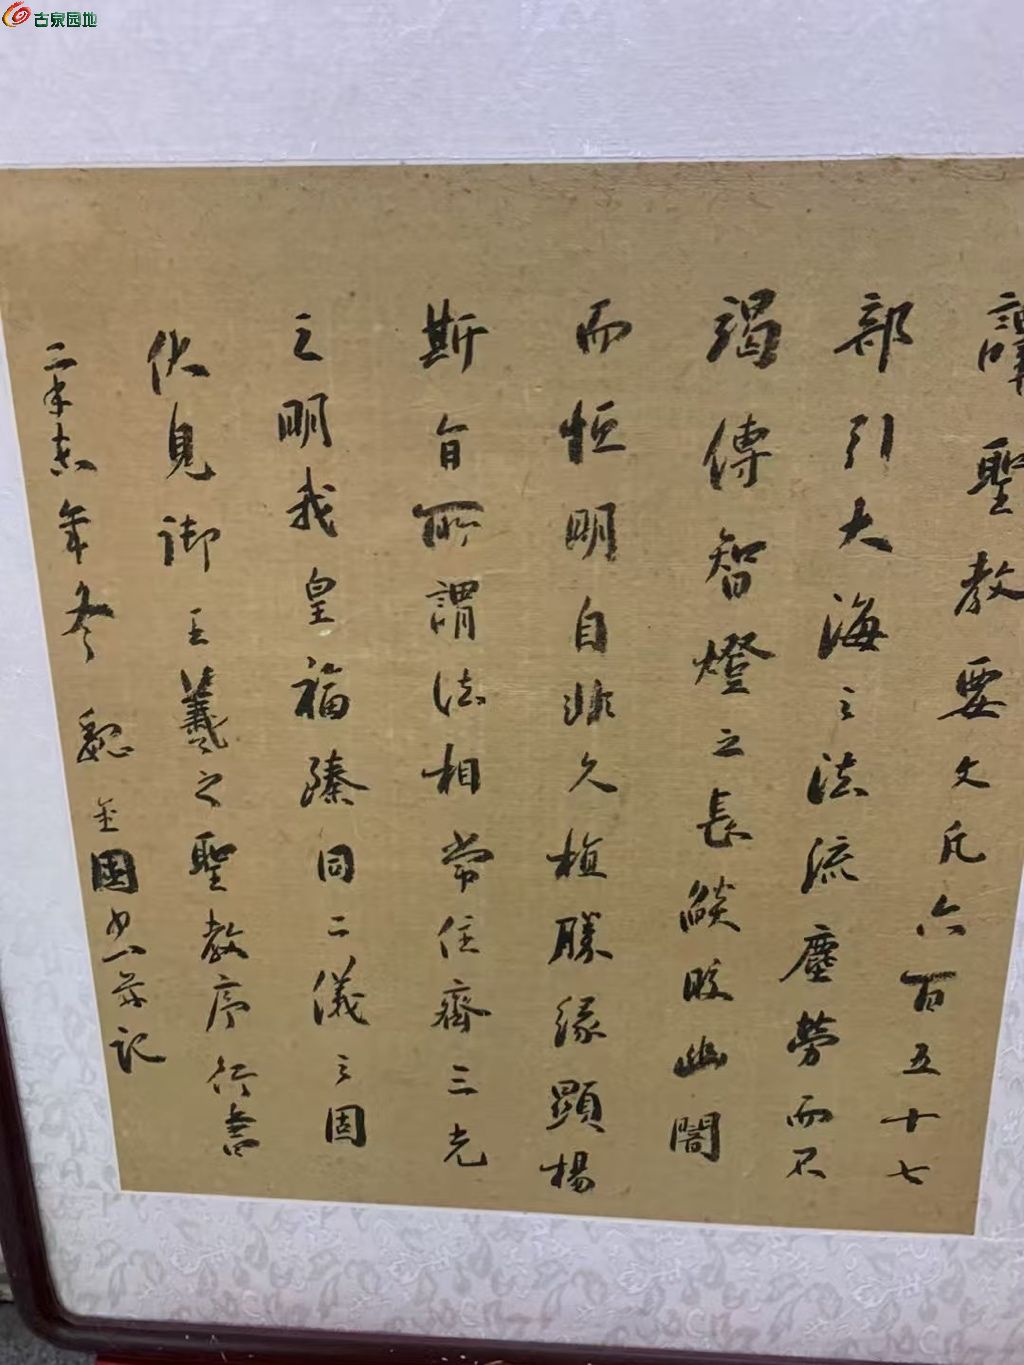 古泉园地
譯聖教要文凡六百五十七
部引大海之法流塵勞而不
竭傳智燈之長燄皎幽闇
而恒明自非久植勝緣顯揚
斯旨所謂法相常住齊三光
之明我皇福臻同二儀之固
伏見御王羲之聖教序行書
年冬魏金國書并記